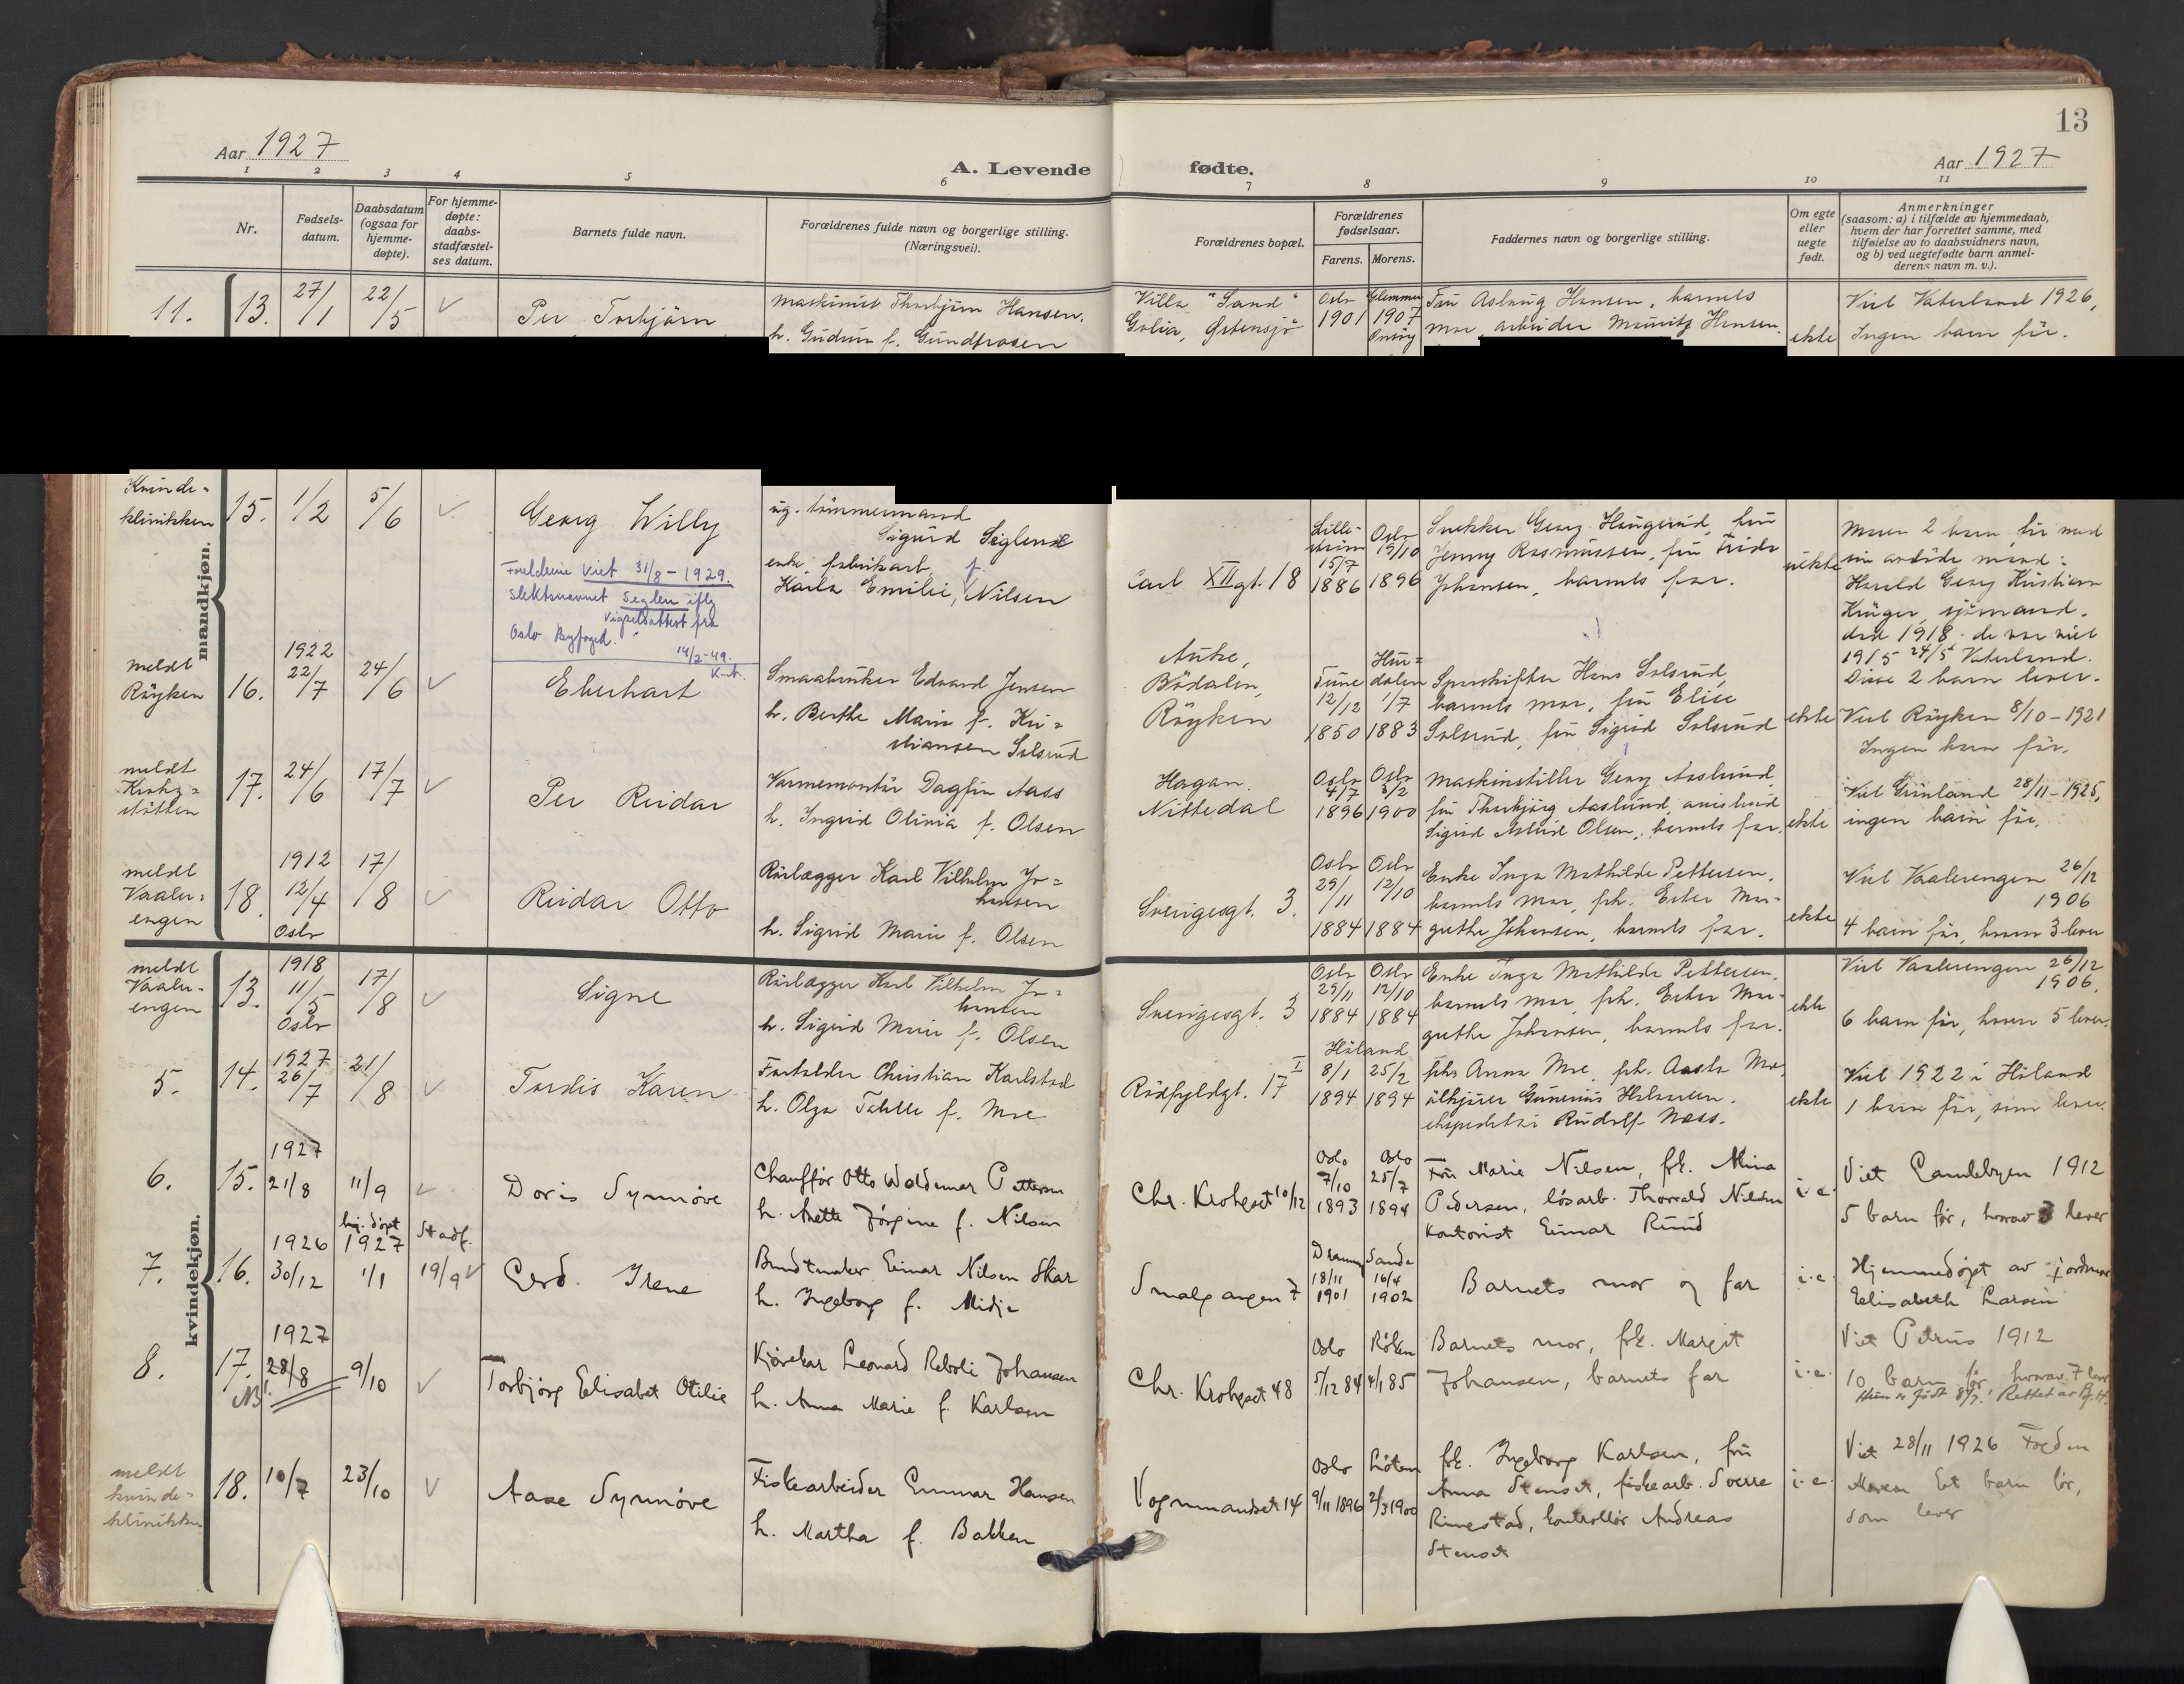 13
Aar 1927
A. Levende fødte.
Aar 1927
1 2 3 4 5 6 7 8 9 10 11
Nr.
Fødsels-
datum.
Daabsdatum
(ogsaa for
hjemme-
døpte).
For hjemme-
døpte:
daabs-
stadfæstel-
ses datum.
Barnets fulde navn.
Forældrenes fulde navn og borgerlige stilling.
(Næringsvei).
Forældrenes bopæl.
Forældrenes
fødselsaar.
Farens. Morens.
Faddernes navn og borgerlige stilling.
Om egte
eller
uegte
født.
Anmerkninger
(saasom: a) i tilfælde av hjemmedaab,
hvem der har forrettet samme, med
tilføielse av to daabsvidners navn,
og b) ved uegtefødte barn anmel-
derens navn m. v.).
mandkjøn.
11. 13. 27/1 22/5
Per Torbjørn
Maskinist Thorbjørn Hansen.
h. Gudrun f. Gundersen
Villa "Sand"
Golia, Østensjø
Oslo
1901
Glemmen
1907
Onsøy
Fru Aslaug Hansen, barnets
mor, arbeider Mauritz Hansen.
ekte
Viet Vaterland 1926,
Ingen barn før.
Kvinde-
klinikken
15. 1/2 5/6
Georg Willy
Foreldrene viet 31/8-1929.
Slektsnavnet Seglen iflg
vigselsattest fra
Oslo Byfoged.
14/2-49.
ug. tømmermand
Sigurd Seglen
enke, fabrikarb. f.
Karla Emilie, Nilsen
Carl XII gt. 18
Lille-
strøm
15/7
1886
Oslo
19/10
1896
Snekker Georg Haugerud, fru
Jenny Rasmussen, fru Frida
Johansen, barnets far.
uekte
Moren 2 barn før med
sin avdøde mand:
Harald Georg Kristian
Krüger, sjømand.
død 1918. de var viet
1915 24/5 Vaterland.
Disse 2 barn lever.
meldt
Røyken
16. 1922
22/7 24/6
Eberhart
Smaabruker Edvard Jensen
h. Berthe Marie f. Kri=
stiansen Solsrud
Auke,
Bødalen,
Røyken
Tune
12/12
1850
Hur=
dalen
1/7
1883
Sporskifter Hans Solsrud,
barnets mor, fru Elise
Solsrud, fru Sigrid Solsrud
ekte
Viet Røyken 8/10-1921
Ingen barn før.
meldt
17. 24/6 17/7
Per Reidar
Varmemontør Dagfin Aass
h. Ingrid Olivia f. Olsen
Hagan
Nittedal
Oslo
4/7
1896
Oslo
3/2
1900
Maskinstiller Georg Aaslund,
fru Thorbjørg Aaslund,
Sigrid Astrid Olsen, barnets far.
ekte
Viet Grønland 28/11-1925,
ingen barn før.
meldt
Vaaler=
engen
18. 1912
12/4
Oslo
17/8
Reidar Otto
Rørlægger Karl Vilhelm Jo=
hansen
h. Sigrid Marie f. Olsen
Sverigesgt. 3.
Oslo
29/11
1884
Oslo
12/10
1884
Enke Inga Mathilde Pettersen,
barnets mor, frk. Ester Mar-
grethe Johansen, barnets far.
ekte
Viet Vaalerengen 26/12
1906
4 barn før, hvorav 3 lever
kvindekjøn.
meldt
Vaaler-
engen
13. 1918
11/5
Oslo
17/8
Signe
Rørlægger Karl Vilhelm Jo=
hansen
h. Sigrid Marie f. Olsen
Sverigesgt. 3
Oslo
29/11
1884
Oslo
12/10
1884
Enke Inga Mathilde Pettersen,
barnets mor, frk. Ester Mar-
grethe Johansen, barnets far.
ekte
Viet Vaalerengen 26/12
1906.
6 barn før, hvorav 5 lever.
5. 14. 1927
26/7 21/8
Tordis Karen
Forvalter Christian Karlstad
h. Olga f. Moe
Rødfyldgt. 17 I
Høland
8/1
1894
25/2
1894
Frk. Anna Moe, frk. Aasta Moe,
ølkjører Gunerius Halvorsen.
ekspeditør Rudolf Næss.
ekte
Viet 1922 i Høland
1 barn før, som lever.
6. 15. 1927
21/8 11/9
Doris Synnøve
Chauffør Otto Waldemar Pettersen
h. Anette Jørgine f. Nilsen
Chr. Krohgsgt 10/12
Oslo
7/10
1893
Oslo
25/7
1894
Fru Marie Nilsen, frk. Mina
Pedersen, løsarb. Thorvald Nilsen
Kontorist Einar Ruud
i.e.
Viet Gamlebyen 1912
5 barn før, hvorav 3 lever
7. 16. 1926
30/12
hj. døpt
1927
1/1
Stadf.
19/9
Gerd Irene
Bundtmaker Einar Nilsen Skar
h. Ingeborg f. Midje
Smalgangen 7
Dramm.
18/11
1901
Sande
16/4
1902
Barnets mor og far
i.e.
Hjemmedøpt av jordmor
Elisabeth Larsen
8. 17. 1927
28/8 9/10
NB!
Torbjørg Elisabet Otilie
Kjørekar Leonard Reboli Johansen
h. Anna Marie f. Karlsen
Chr. Krohgsgt 48
Oslo
5/12 84
Røken
4/1 85
Barnets mor, frk. Margit
Johansen, barnets far
i.e.
Viet Petrus 1912
10 barn før hvorav 7 lever
Hun er født 8/7! Rettet av
meldt
kvinde-
klinikken
18. 10/7 23/10
Aase Synnøve
Fiskearbeider Gunnar Hansen
h. Martha f. Bakken
Vognmandsgt 14
Oslo
9/11 1896
Løten
2/3 1900
frk. Ingeborg Karlsen, fru
Anna Stenset, fiskearb. Sverre
Rimestad, kontrollør Andreas
Stenset
i.e.
Viet 28/11 1926
Et barn før,
som lever